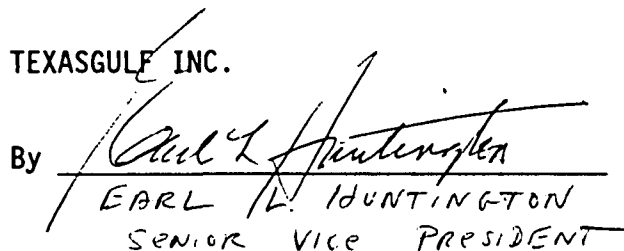 TEXASGULF INC.
By Earl L Huntington
EARL L. HUNTINGTON
SENIOR VICE PRESIDENT